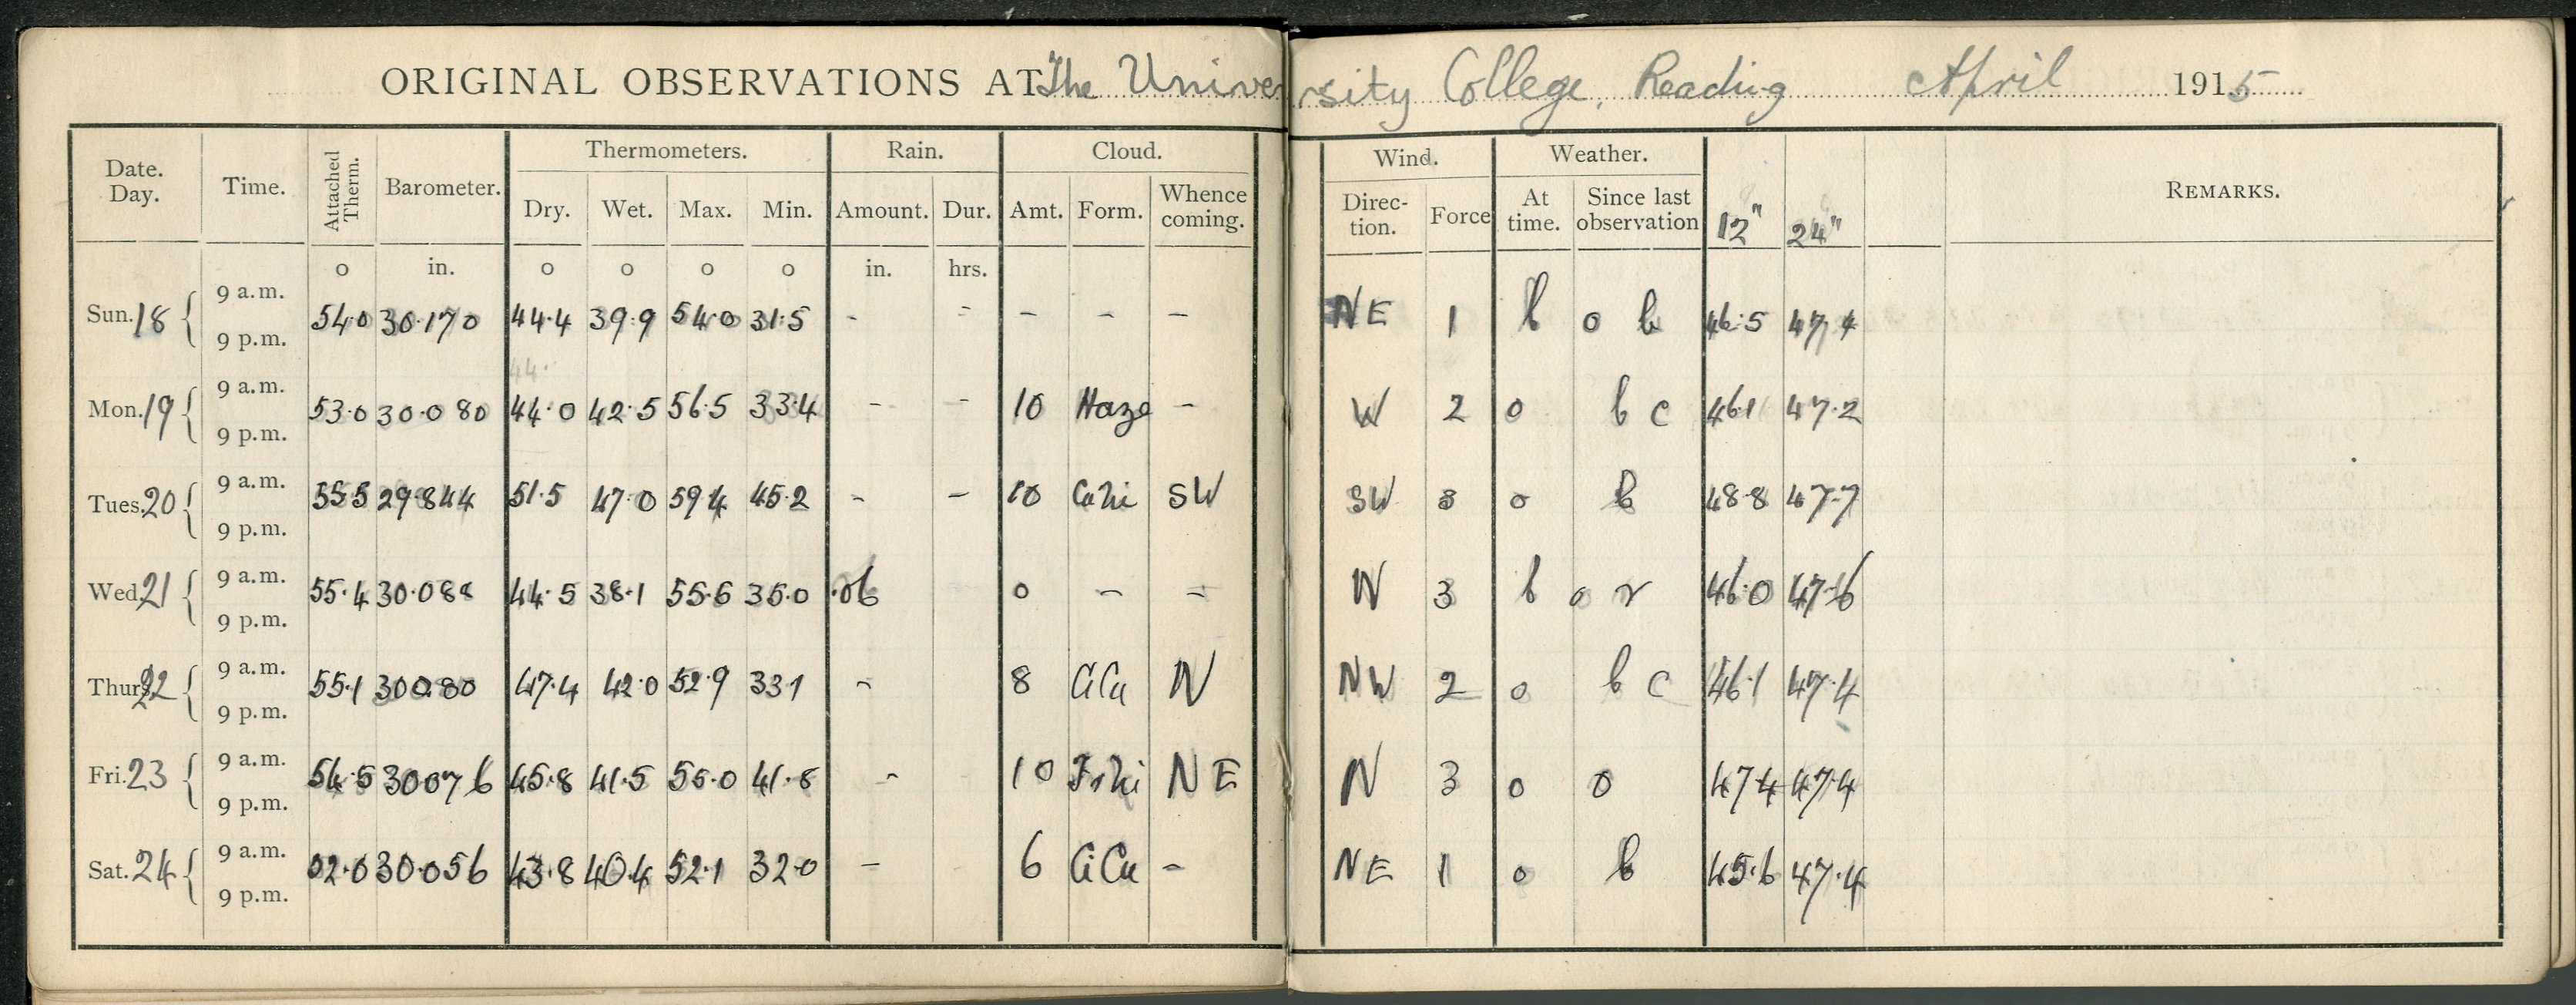 ORIGINAL OBSERVATIONS AT The University College, Reading April 1915
Date. Day. Time. Attached Therm. Barometer. Thermometers. Rain. Cloud. Wind. Weather. REMARKS.
Dry. Wet. Max. Min. Amount. Dur. Amt. Form. Whence coming. Direc- tion. Force At time. Since last observation 12" 24"
o in. o o o o in. hrs.
Sun. 18 { 9 a.m. 9 p.m. 54.0 30.170 44.4 39.9 54.0 31.5 - - - - - NE 1 b o b 46.5 47.4
44.
Mon. 19 { 9 a.m. 9 p.m. 53.0 30.080 44.0 42.5 56.5 33.4 - - 10 Haze - W 2 o b c 46.1 47.2
Tues. 20 { 9 a.m. 9 p.m. 55.5 29.844 51.5 47.0 59.4 45.2 - - 10 SW SW 3 o b 48.8 47.7
Wed. 21 { 9 a.m. 9 p.m. 55.4 30.088 44.5 38.1 55.6 35.0 .06 0 - - N 3 b o r 46.0 47.6
Thurs. 22 { 9 a.m. 9 p.m. 55.1 30.080 47.4 42.0 52.9 33.1 - 8 CiCu N NW 2 o b c 46.1 47.4
Fri. 23 { 9 a.m. 9 p.m. 54.5 30076 45.8 41.5 55.0 41.8 - 10 NE N 3 o o 47.4 47.4
Sat. 24 { 9 a.m. 9 p.m. 52.0 30.056 43.8 40.4 52.1 32.0 - 6 CiCu - NE 1 o b 45.6 47.4